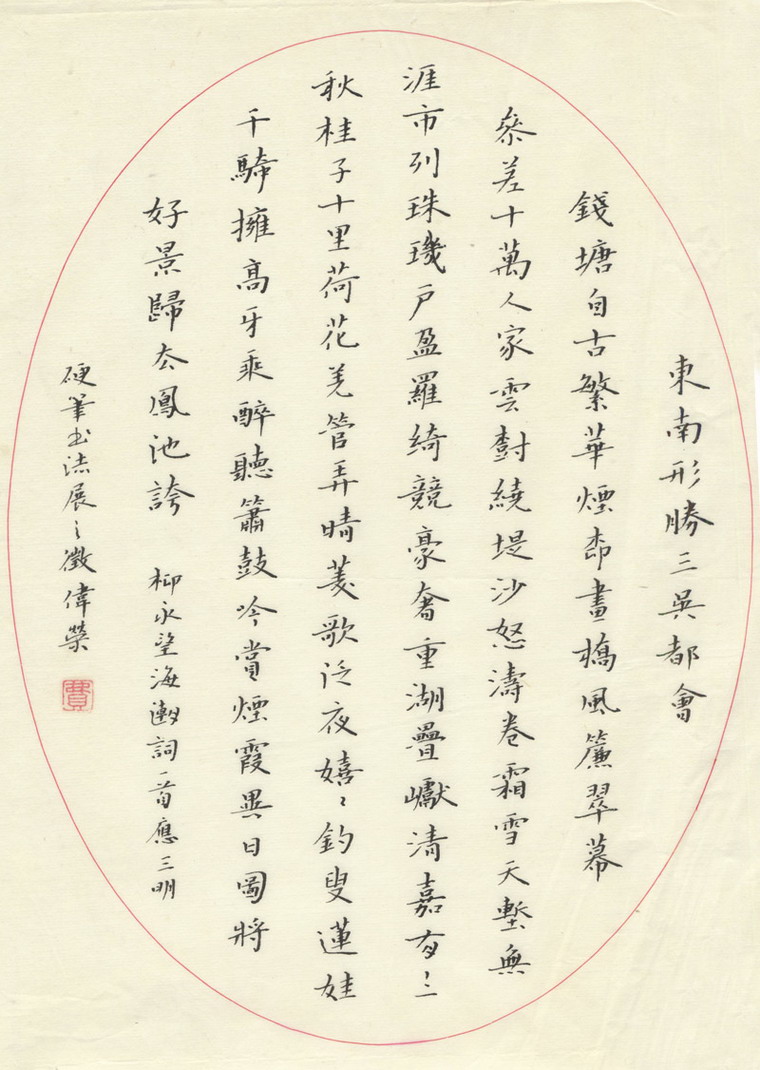 東南形勝三吳都會
錢塘自古繁華煙柳畫橋風簾翠幕
參差十萬人家雲樹繞堤沙怒濤卷霜雪天塹無
涯市列珠璣戶盈羅綺競豪奢重湖疊巘清嘉有三
秋桂子十里荷花羌管弄晴菱歌泛夜嬉嬉釣叟蓮娃
千騎擁高牙乘醉聽簫鼓吟賞煙霞異日圖將
好景歸去鳳池誇 柳永望海潮詞一首應三明
硬筆書法展之徵偉榮
費